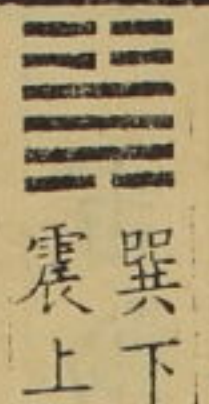 巽下
震上